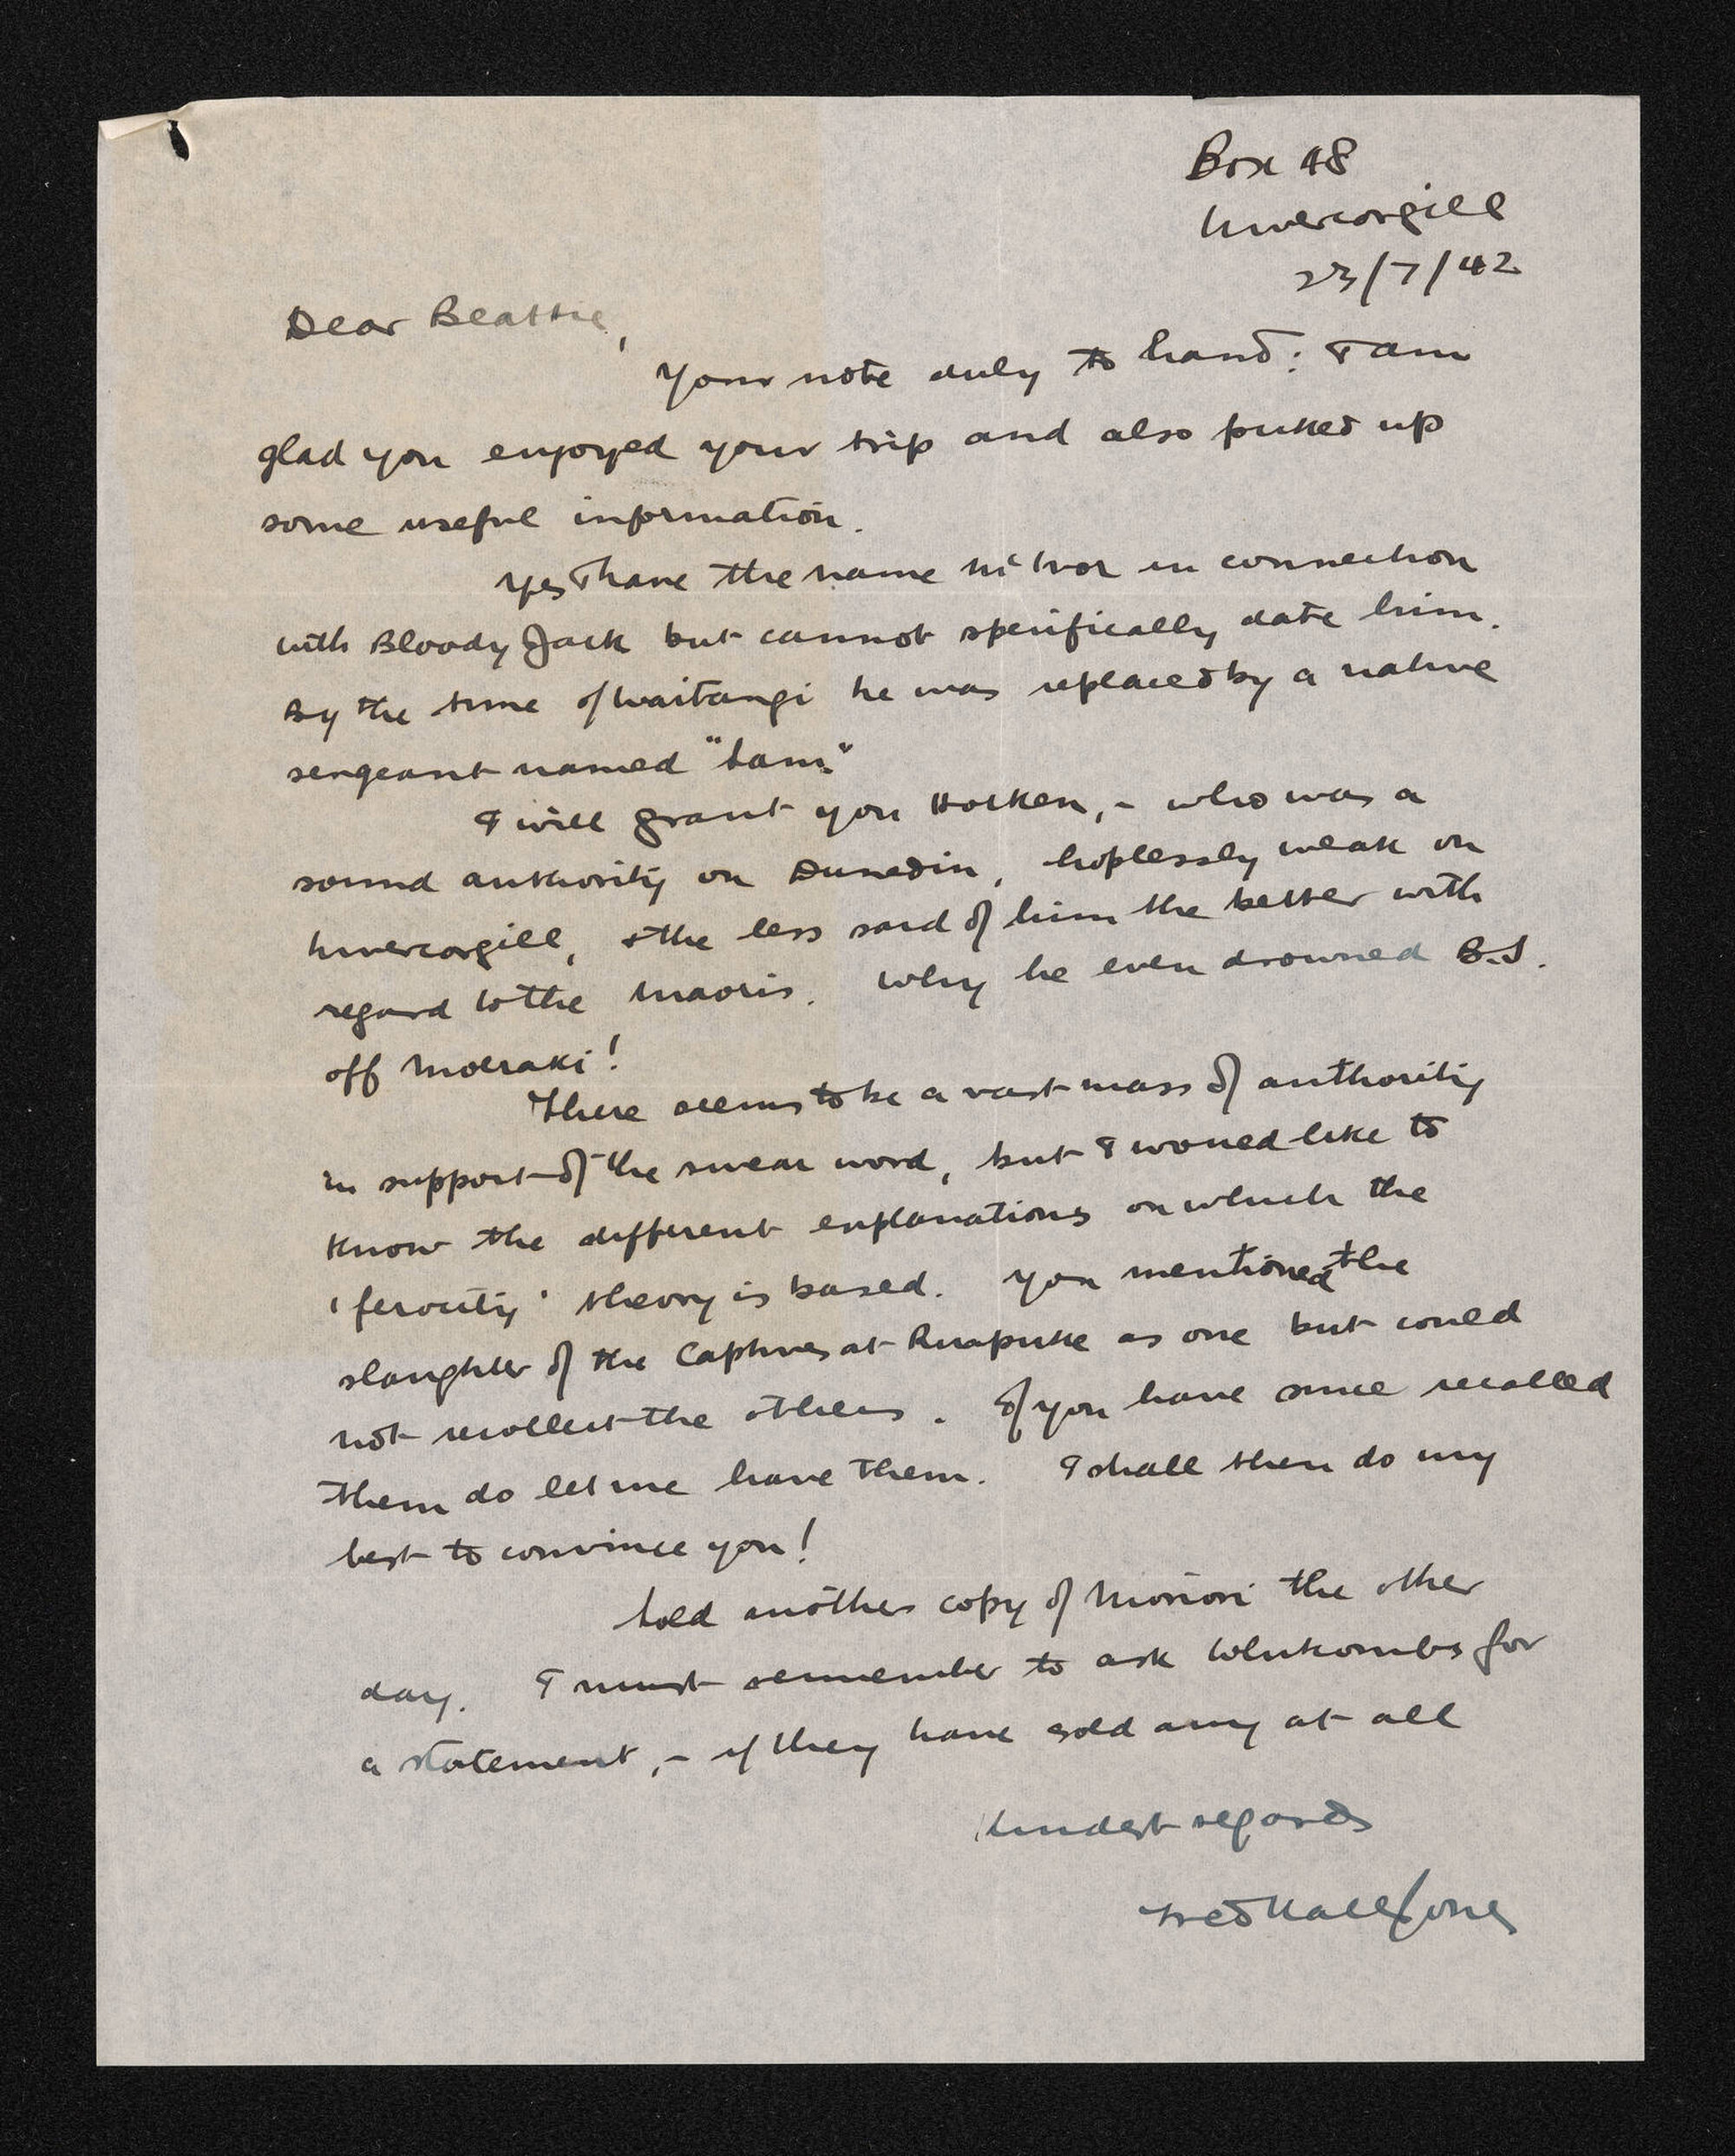 Box 48
Invercargill
23/7/42
Dear Beattie,
Your note duly to hand: I am
glad you enjoyed your trip and also picked up
some useful information.
Yes I have the name McIvor in connection
with Bloody Jack but cannot specifically date him.
By the time of Waitangi he was replaced by a native
sergeant named "Sam."
I will grant you Hocken, - who was a
sound authority on Dunedin, hoplessly weak on
Invercargill, & the less said of him the better with
regard to the Maoris. Why he even drowned B.J.
off Moeraki!
There seems to be a vast mass of authority
in support of the swear word, but I would like to
know the different explanations on which the
'ferocity' theory is based. You mentioned the
slaughter of the Captives at Ruapuke as one but could
not recollect the others. If you have since recalled
them do let me have them. I shall then do my
best to convince you!
Sold another copy of Moriori the other
day. I must remember to ask Whitcombs for
a statement, - if they have sold any at all
Kindest regards
Fred Hall Jones